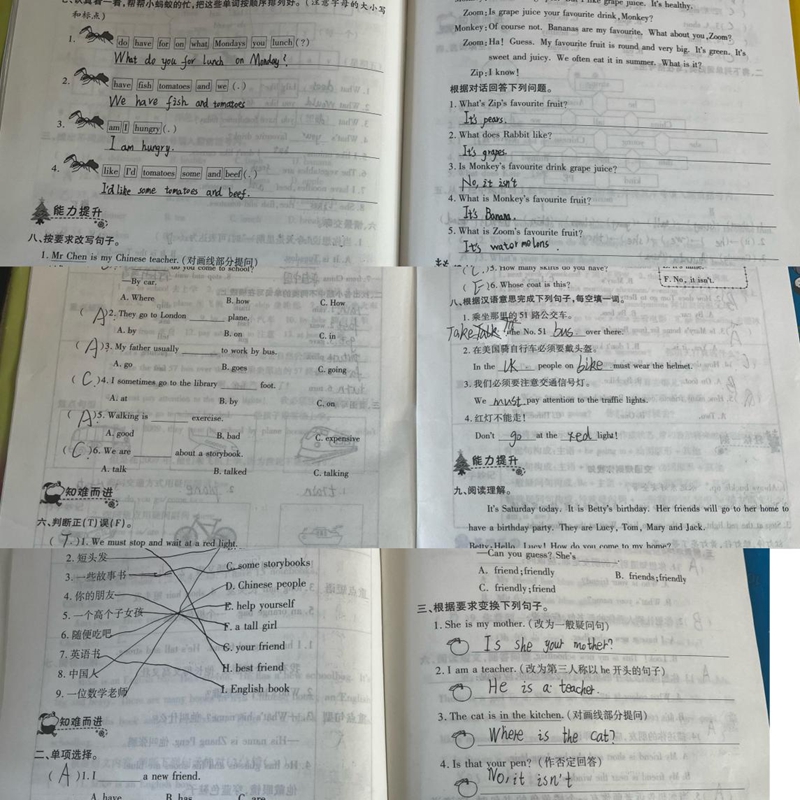 七、认真看一看,帮帮小蚂蚁的忙,把这些单词按顺序排列好。(注意字母的大小写
和标点)
1. do have for on what Mondays you lunch (?)
What do you for lunch on Monday?
2. have fish tomatoes and we (.)
We have fish and tomatoes
3. am I hungry (.)
I am hungry.
4. like I'd tomatoes some and beef (.)
I'd like some tomatoes and beef.
能力提升
八、按要求改写句子。
1. Mr Chen is my Chinese teacher. (对画线部分提问)
I like grape juice. It's healthy.
Zoom: Is grape juice your favourite drink, Monkey?
Monkey: Of course not. Bananas are my favourite. What about you, Zoom?
Zoom: Ha! Guess. My favourite fruit is round and very big. It's green. It's
sweet and juicy. We often eat it in summer. What is it?
Zip: I know!
根据对话回答下列问题。
1. What's Zip's favourite fruit?
It's pears.
2. What does Rabbit like?
It's grapes.
3. Is Monkey's favourite drink grape juice?
No, it isn't
4. What is Monkey's favourite fruit?
It's Banana.
5. What is Zoom's favourite fruit?
It's watormolons.
do you come to school?
—By car.
A. Where B. how C. How
(A)2. They go to London ______ plane.
A. by B. on C. in
(A)3. My father usually ______ to work by bus.
A. go B. goes C. going
(C)4. I sometimes go to the library ______ foot.
A. at B. by C. on
(A)5. Walking is ______ exercise.
A. good B. bad C. expensive
(C)6. We are ______ about a storybook.
A. talk B. talked C. talking
知难而进
六、判断正(T)误(F)。
(T)1. We must stop and wait at a red light.
(C)5. How many skirts do you have?
(F)6. Whose coat is this?
F. No, it isn't.
八、根据汉语意思完成下列句子,每空填一词。
1. 乘坐那里的 51 路公交车。
Take the No. 51 bus over there.
2. 在英国骑自行车必须要戴头盔。
In the UK people on bike must wear the helmet.
3. 我们必须要注意交通信号灯。
We must pay attention to the traffic lights.
4. 红灯不能走!
Don't go at the red light!
能力提升
九、阅读理解。
It's Saturday today. It is Betty's birthday. Her friends will go to her home to
have a birthday party. They are Lucy, Tom, Mary and Jack.
Betty: Hello, Lucy! How do you come to my home?
2. 短头发
3. 一些故事书 C. some storybooks
4. 你的朋友 D. Chinese people
5. 一个高个子女孩 E. help yourself
6. 随便吃吧 F. a tall girl
7. 英语书 G. your friend
8. 中国人 H. best friend
9. 一位数学老师 I. English book
知难而进
二、单项选择。
(A)1. I ______ a new friend.
A. have B. has C. are
—Can you guess? She's ______.
A. friend; friendly B. friends; friendly
C. friendly; friend
三、根据要求变换下列句子。
1. She is my mother. (改为一般疑问句)
Is she your mother?
2. I am a teacher. (改为第三人称以 he 开头的句子)
He is a teacher.
3. The cat is in the kitchen. (对画线部分提问)
Where is the cat?
4. Is that your pen? (作否定回答)
No, it isn't